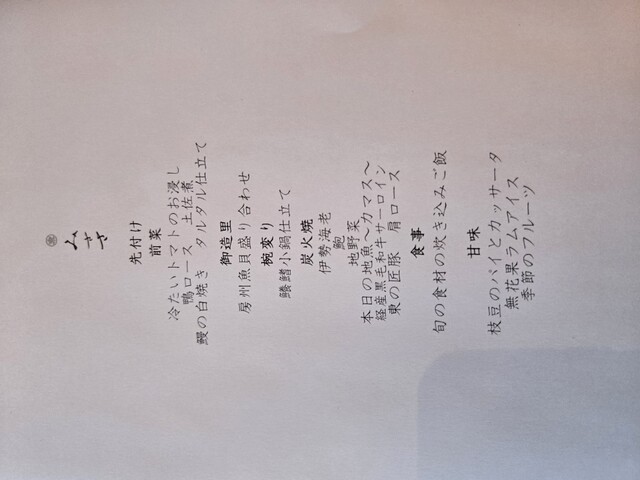 みささ
先付け
前菜
冷たいトマトのお浸し
鴨ロース 土佐煮
鰻の白焼き タルタル仕立て
御造里
房州魚貝盛り合わせ
椀変り
鱶鰭小鍋仕立て
炭火焼
伊勢海老
鮑
地野菜
本日の地魚～カマス～
経産黒毛和牛サーロイン
東の匠豚 肩ロース
食事
旬の食材の炊き込みご飯
甘味
枝豆のパイとカッサータ
無花果ラムアイス
季節のフルーツ